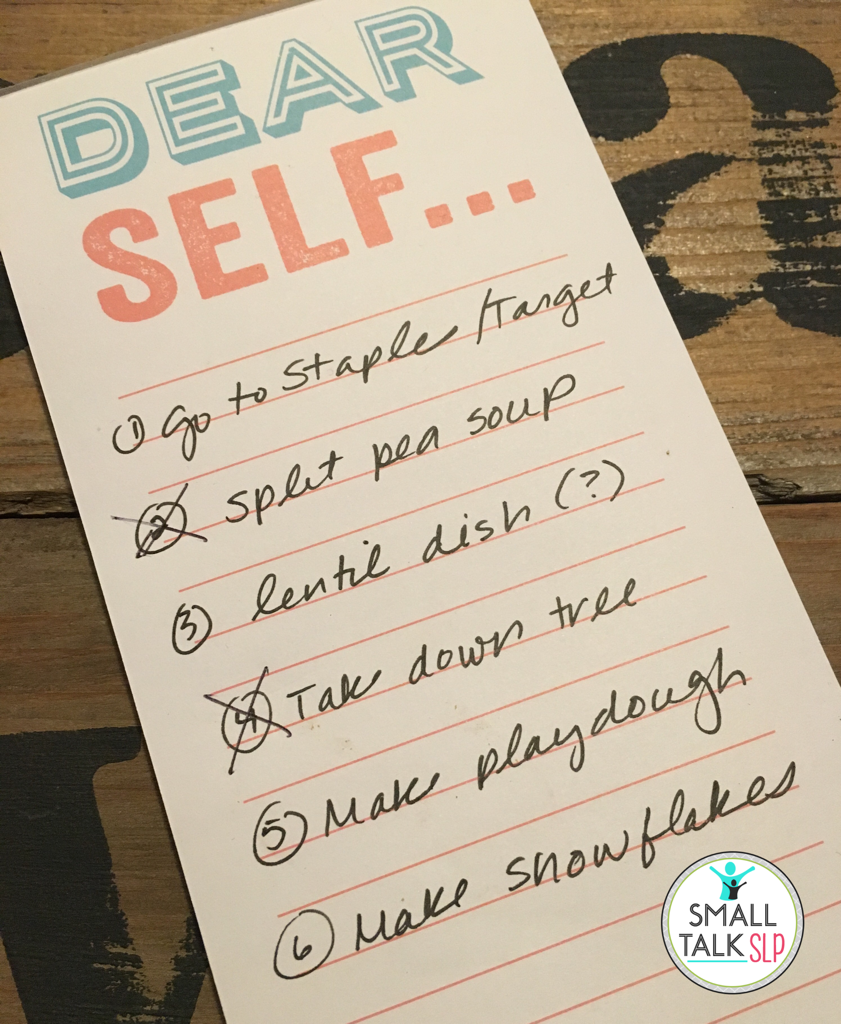 DEAR
SELF...
① Go to Staples/Target
② split pea soup
③ lentil dish (?)
④ Take down tree
⑤ Make playdough
⑥ Make snowflakes
SMALL
TALK SLP